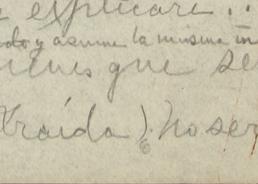 explicaré...
y asume la misma
que se
traída). No ser